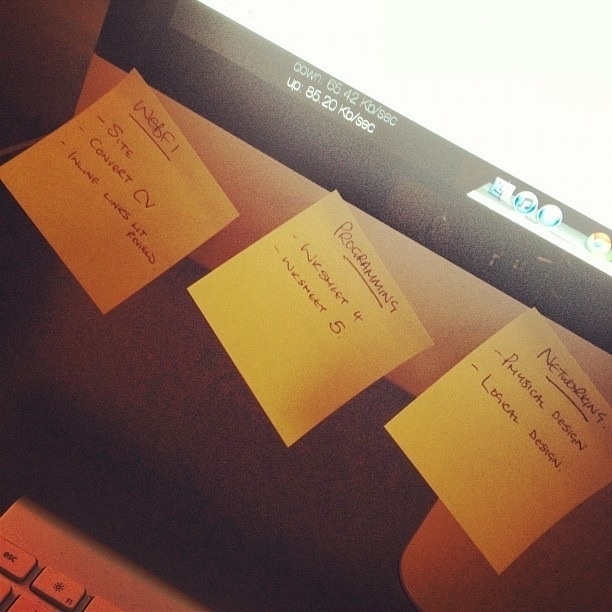 down: 65.42 Kb/sec
up: 85.20 Kb/sec
WebF1
- SITE
- CONVERT CV
- INLINE LINKS
PROGRAMMING
- WKSHEET 4
- WKSHEET 5.
NETWORKING.
- PHYSICAL DESIGN
- LOGICAL DESIGN.
esc
F1